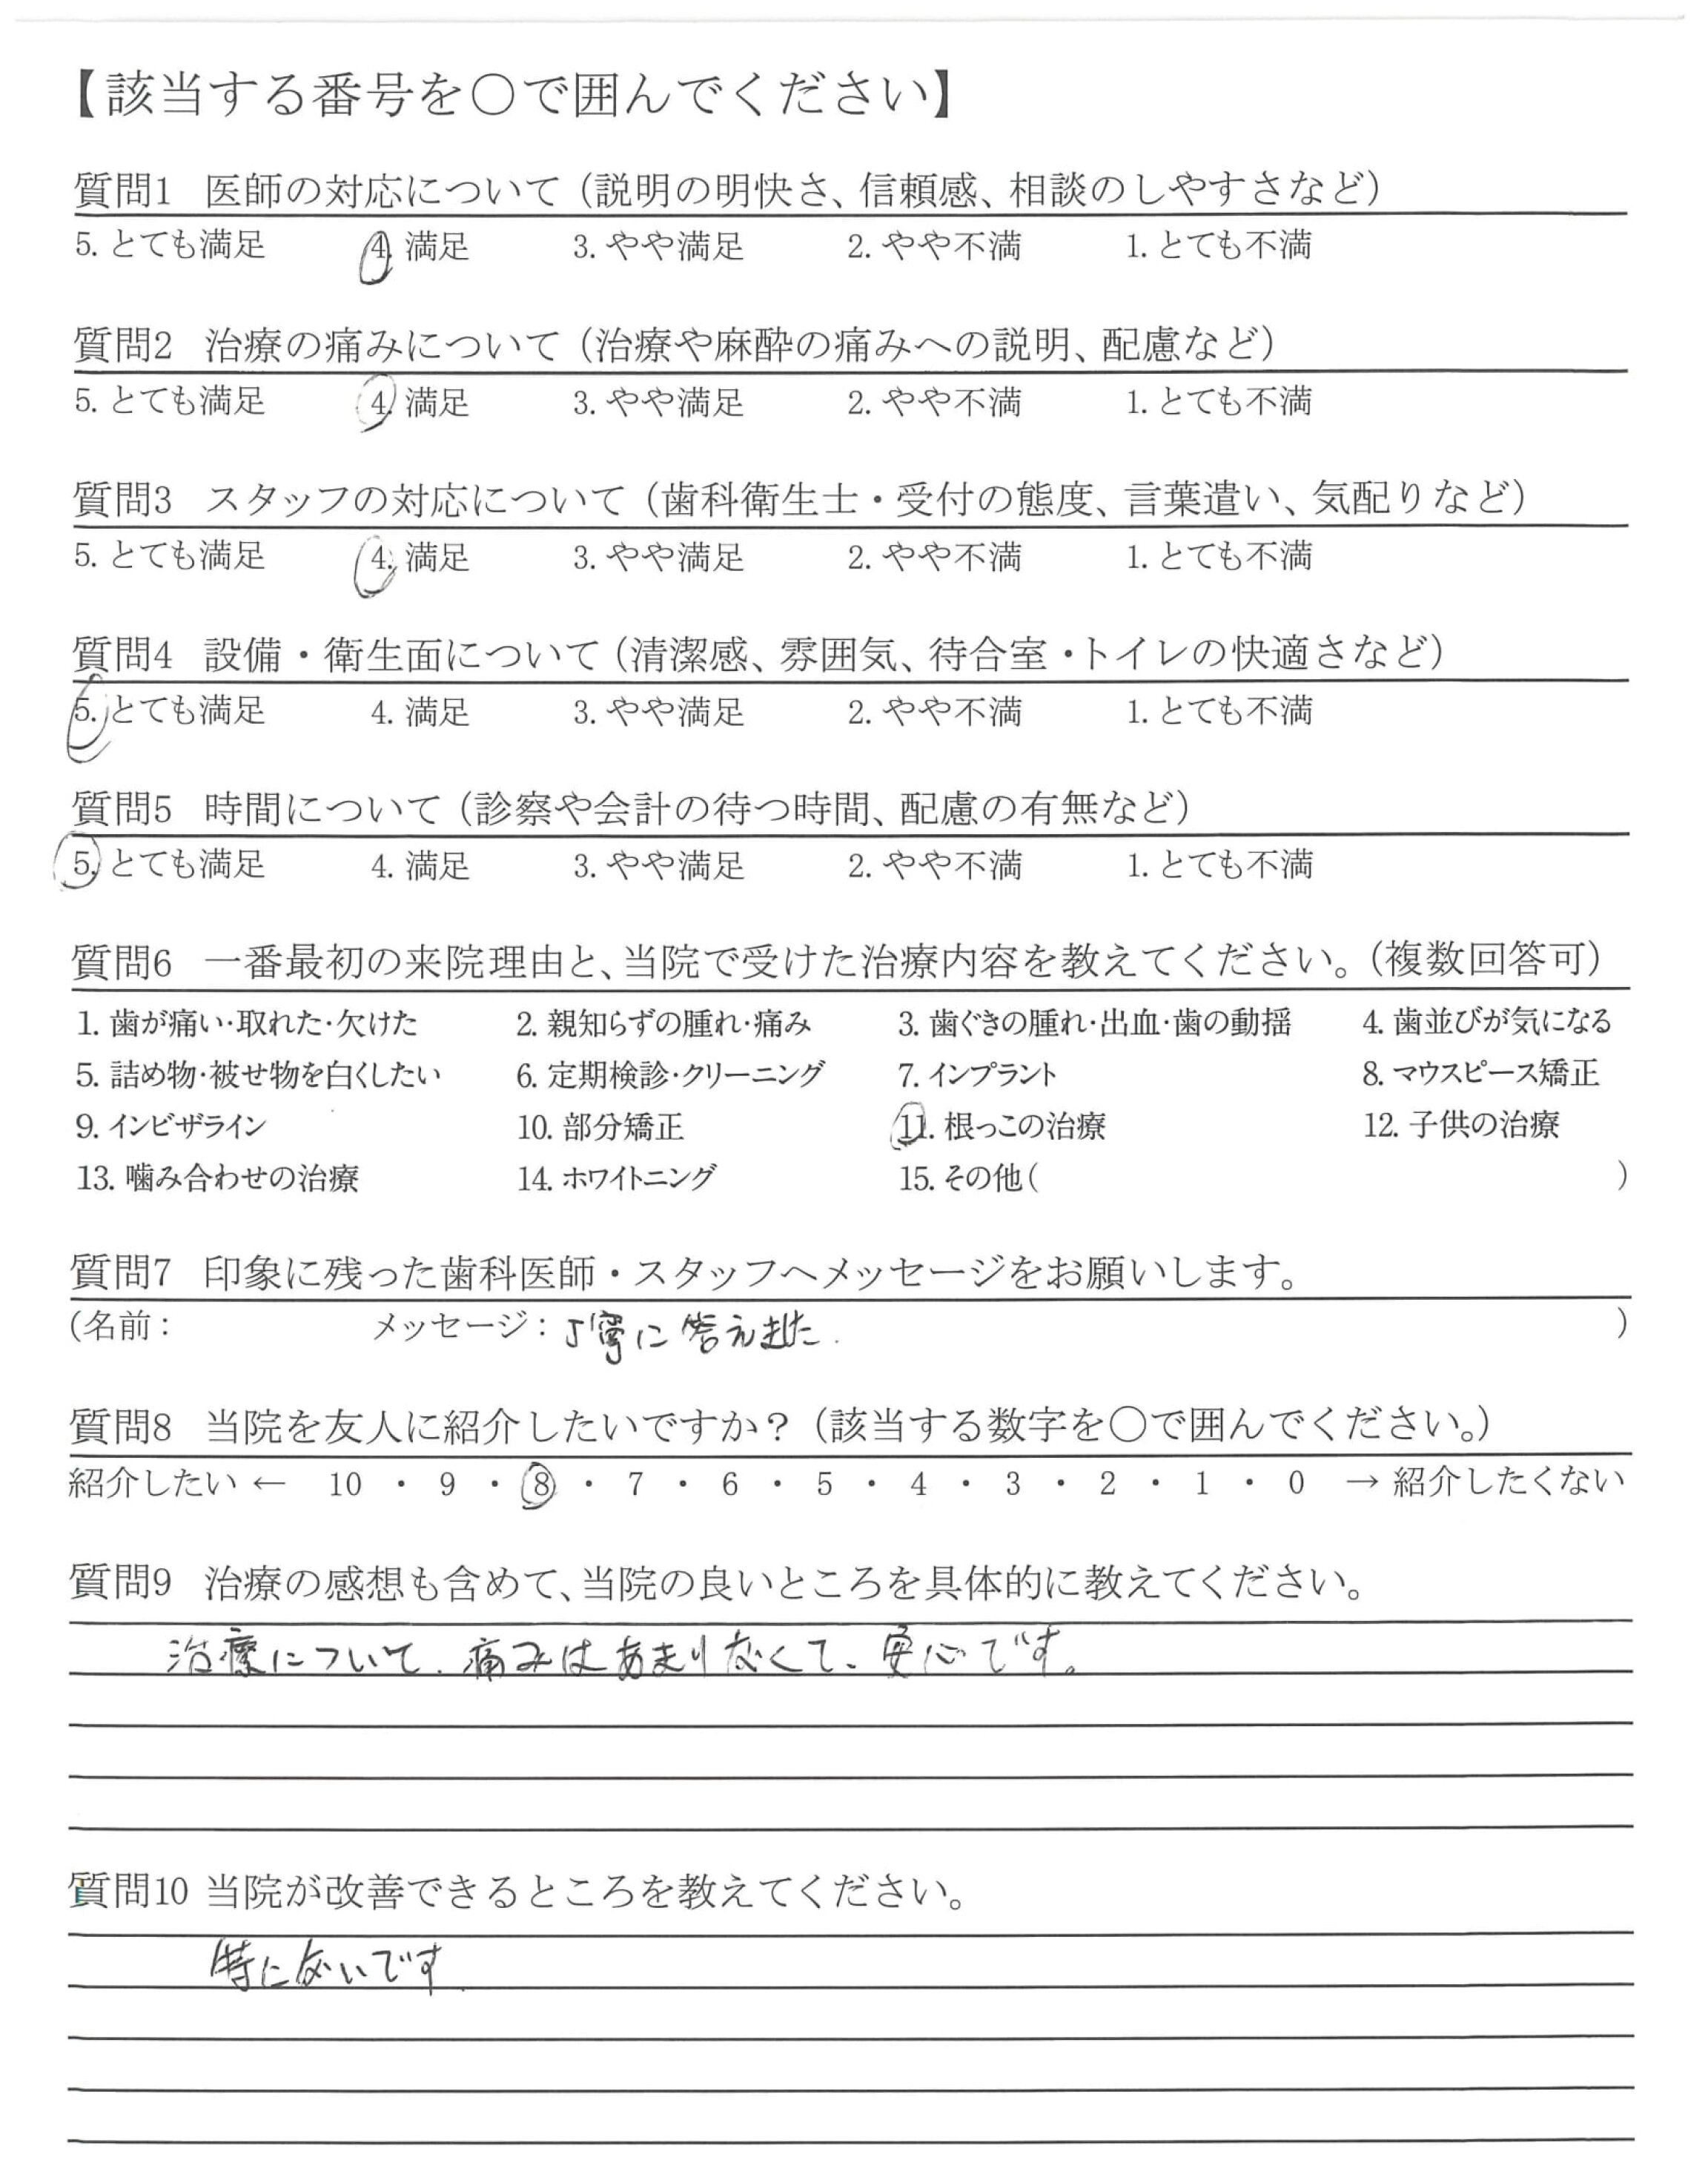 【該当する番号を○で囲んでください】
質問1 医師の対応について（説明の明快さ、信頼感、相談のしやすさなど）
5. とても満足 4. 満足 3. やや満足 2. やや不満 1. とても不満
質問2 治療の痛みについて（治療や麻酔の痛みへの説明、配慮など）
5. とても満足 4. 満足 3. やや満足 2. やや不満 1. とても不満
質問3 スタッフの対応について（歯科衛生士・受付の態度、言葉遣い、気配りなど）
5. とても満足 4. 満足 3. やや満足 2. やや不満 1. とても不満
質問4 設備・衛生面について（清潔感、雰囲気、待合室・トイレの快適さなど）
5. とても満足 4. 満足 3. やや満足 2. やや不満 1. とても不満
質問5 時間について（診察や会計の待つ時間、配慮の有無など）
5. とても満足 4. 満足 3. やや満足 2. やや不満 1. とても不満
質問6 一番最初の来院理由と、当院で受けた治療内容を教えてください。（複数回答可）
1. 歯が痛い・取れた・欠けた 2. 親知らずの腫れ・痛み 3. 歯ぐきの腫れ・出血・歯の動揺 4. 歯並びが気になる
5. 詰め物・被せ物を白くしたい 6. 定期検診・クリーニング 7. インプラント 8. マウスピース矯正
9. インビザライン 10. 部分矯正 11. 根っこの治療 12. 子供の治療
13. 噛み合わせの治療 14. ホワイトニング 15. その他（ ）
質問7 印象に残った歯科医師・スタッフへメッセージをお願いします。
（名前： メッセージ：丁寧に答えました. ）
質問8 当院を友人に紹介したいですか？（該当する数字を○で囲んでください。）
紹介したい ← 10 ・ 9 ・ 8 ・ 7 ・ 6 ・ 5 ・ 4 ・ 3 ・ 2 ・ 1 ・ 0 → 紹介したくない
質問9 治療の感想も含めて、当院の良いところを具体的に教えてください。
治療について、痛みはあまりなくて、安心です。
質問10 当院が改善できるところを教えてください。
特にないです.